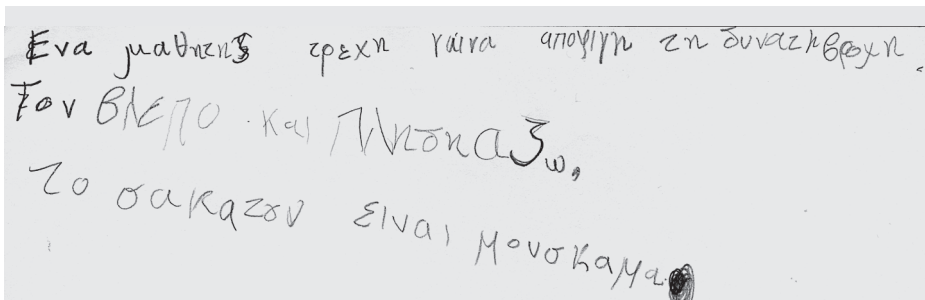 Ενα μαθητης τρεχη γαινα αποφιγη τη δυνατη βροχη.
Τον βλεπο και πλησηαζω,
το σακατου ειναι μουσκαμα